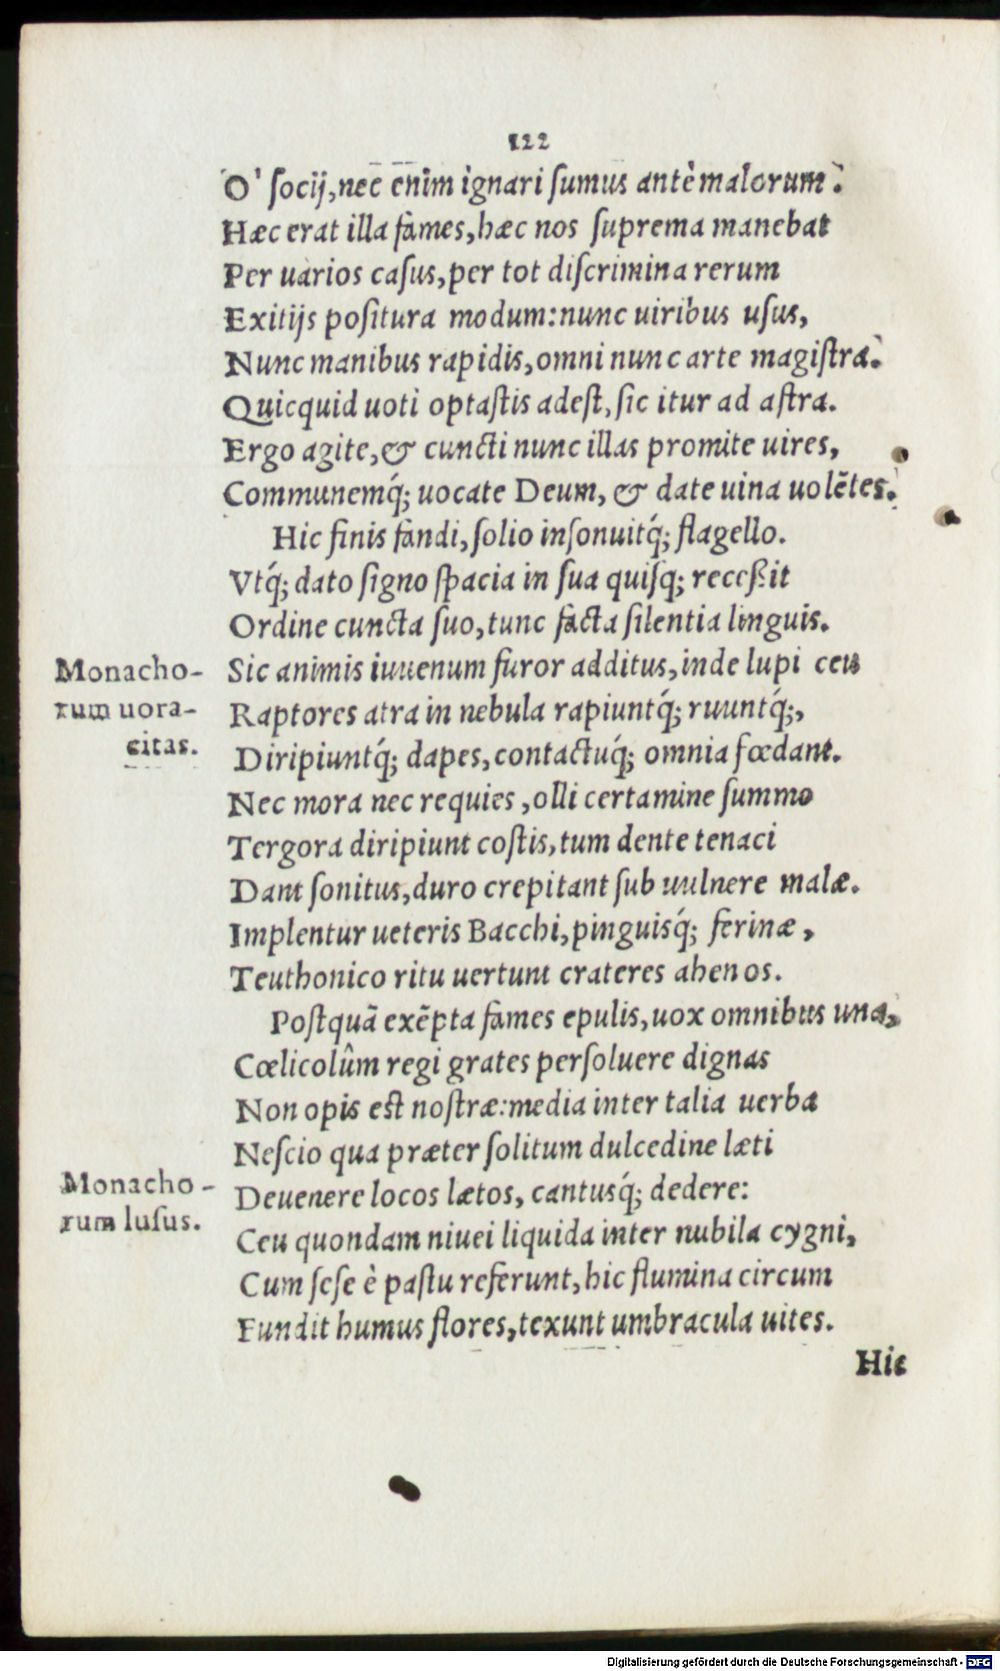 122
O' socij, nec enim ignari sumus antè malorum.
Hæc erat illa fames, hæc nos suprema manebat
Per uarios casus, per tot discrimina rerum
Exitijs positura modum: nunc uiribus usus,
Nunc manibus rapidis, omni nunc arte magistra.
Quicquid uoti optastis adest, sic itur ad astra.
Ergo agite, & cuncti nunc illas promite uires,
Communemq́; uocate Deum, & date uina uolētes.
Hic finis fandi, solio insonuitq́; flagello.
Vtq́; dato signo spacia in sua quisq; recessit
Ordine cuncta suo, tunc facta silentia linguis.
Monacho-
rum uora-
citas.
Sic animis iuuenum furor additus, inde lupi ceu
Raptores atra in nebula rapiuntq́; ruuntq́;,
Diripiuntq́; dapes, contactuq́; omnia fœdant.
Nec mora nec requies, olli certamine summo
Tergora diripiunt costis, tum dente tenaci
Dant sonitus, duro crepitant sub uulnere malæ.
Implentur ueteris Bacchi, pinguisq́; ferinæ,
Teuthonico ritu uertunt crateres ahenos.
Postquā exēpta fames epulis, uox omnibus una,
Cœlicolûm regi grates persoluere dignas
Non opis est nostræ: media inter talia uerba
Nescio qua præter solitum dulcedine læti
Monacho-
rum lusus.
Deuenere locos lætos, cantusq́; dedere:
Ceu quondam niuei liquida inter nubila cygni,
Cum sese è pastu referunt, hic flumina circum
Fundit humus flores, texunt umbracula uites.
Hic
Digitalisierung gefördert durch die Deutsche Forschungsgemeinschaft - DFG